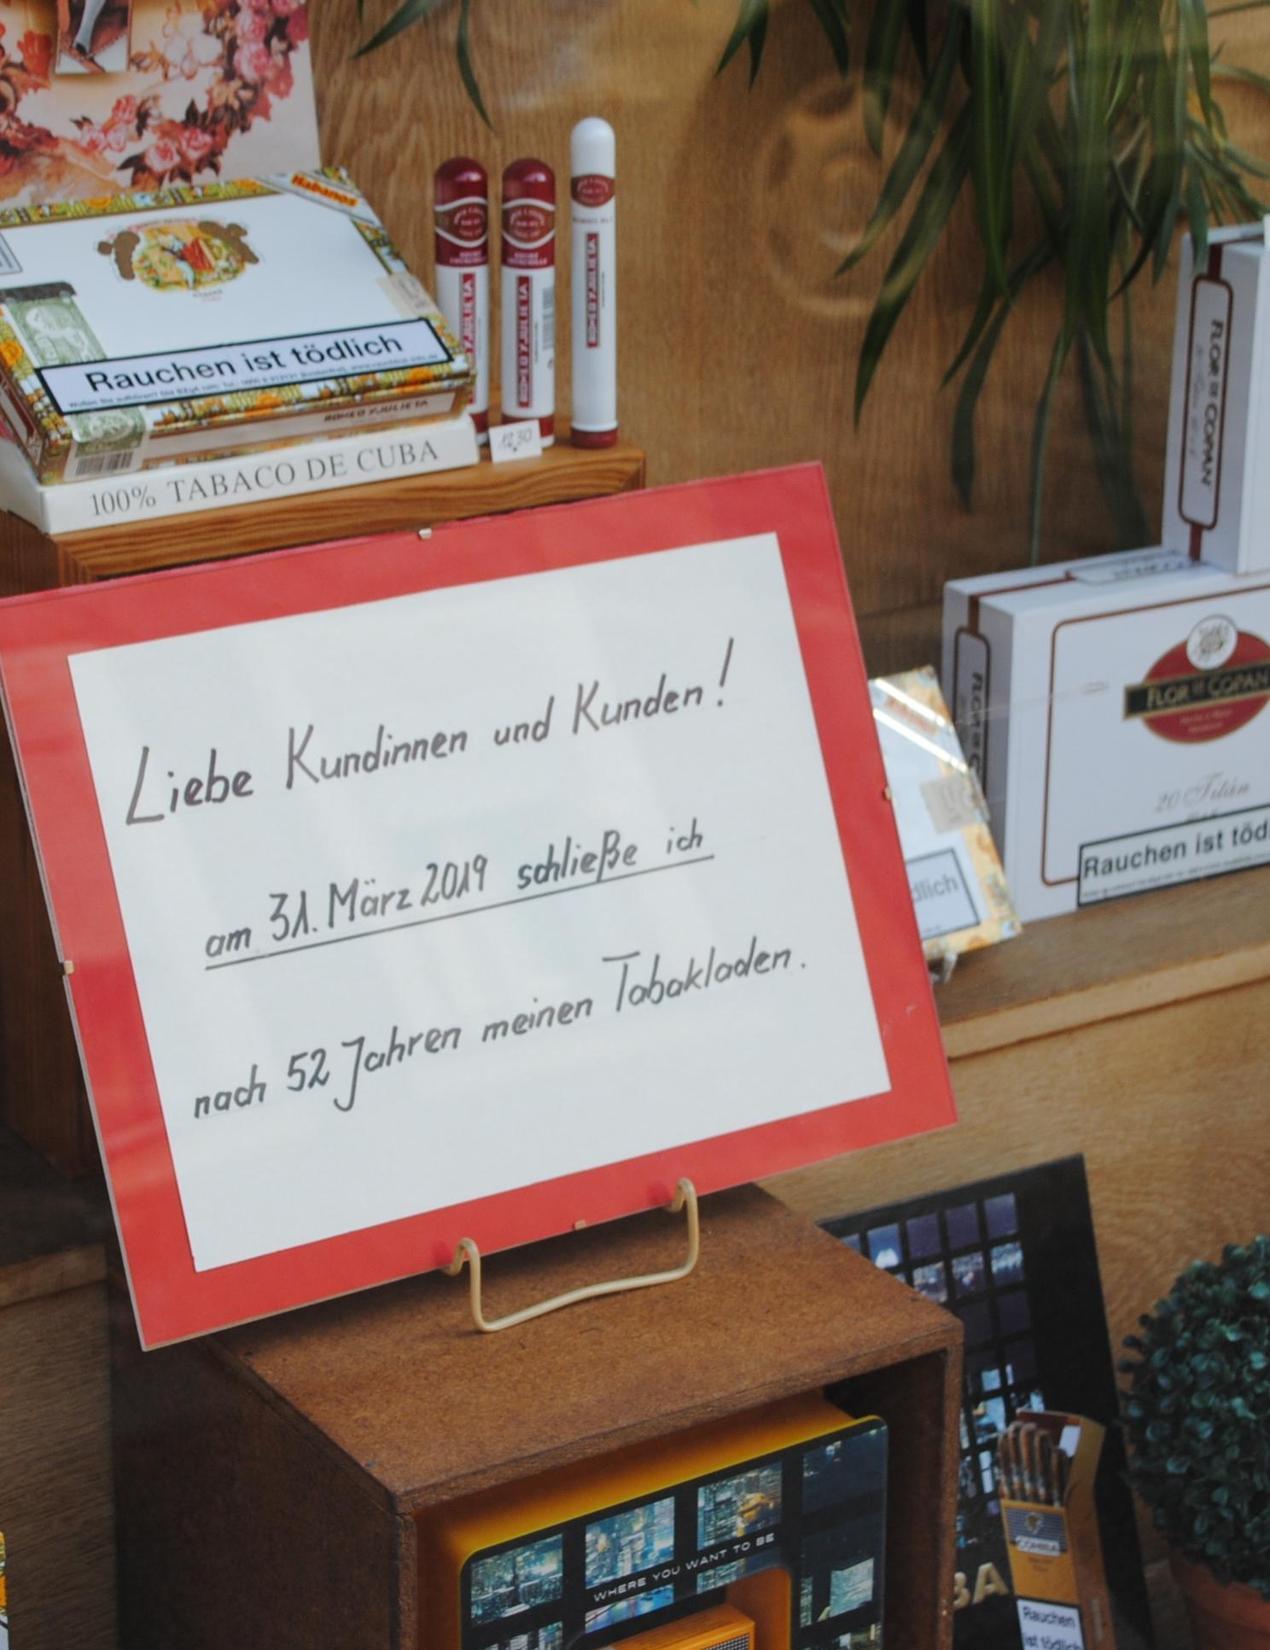 Habanos
Rauchen ist tödlich
ROMEO Y JULIETA
100% TABACO DE CUBA
ROMEO Y JULIETA
ROMEO Y JULIETA
ROMEO Y JULIETA
12,30
Liebe Kundinnen und Kunden!
am 31. März 2019 schließe ich
nach 52 Jahren meinen Tabakladen.
FLOR DE COPAN
FLOR DE COPAN
20 Titán
Rauchen ist töd
dlich
WHERE YOU WANT TO BE
COHIBA
BA
Rauchen
ist tödlich